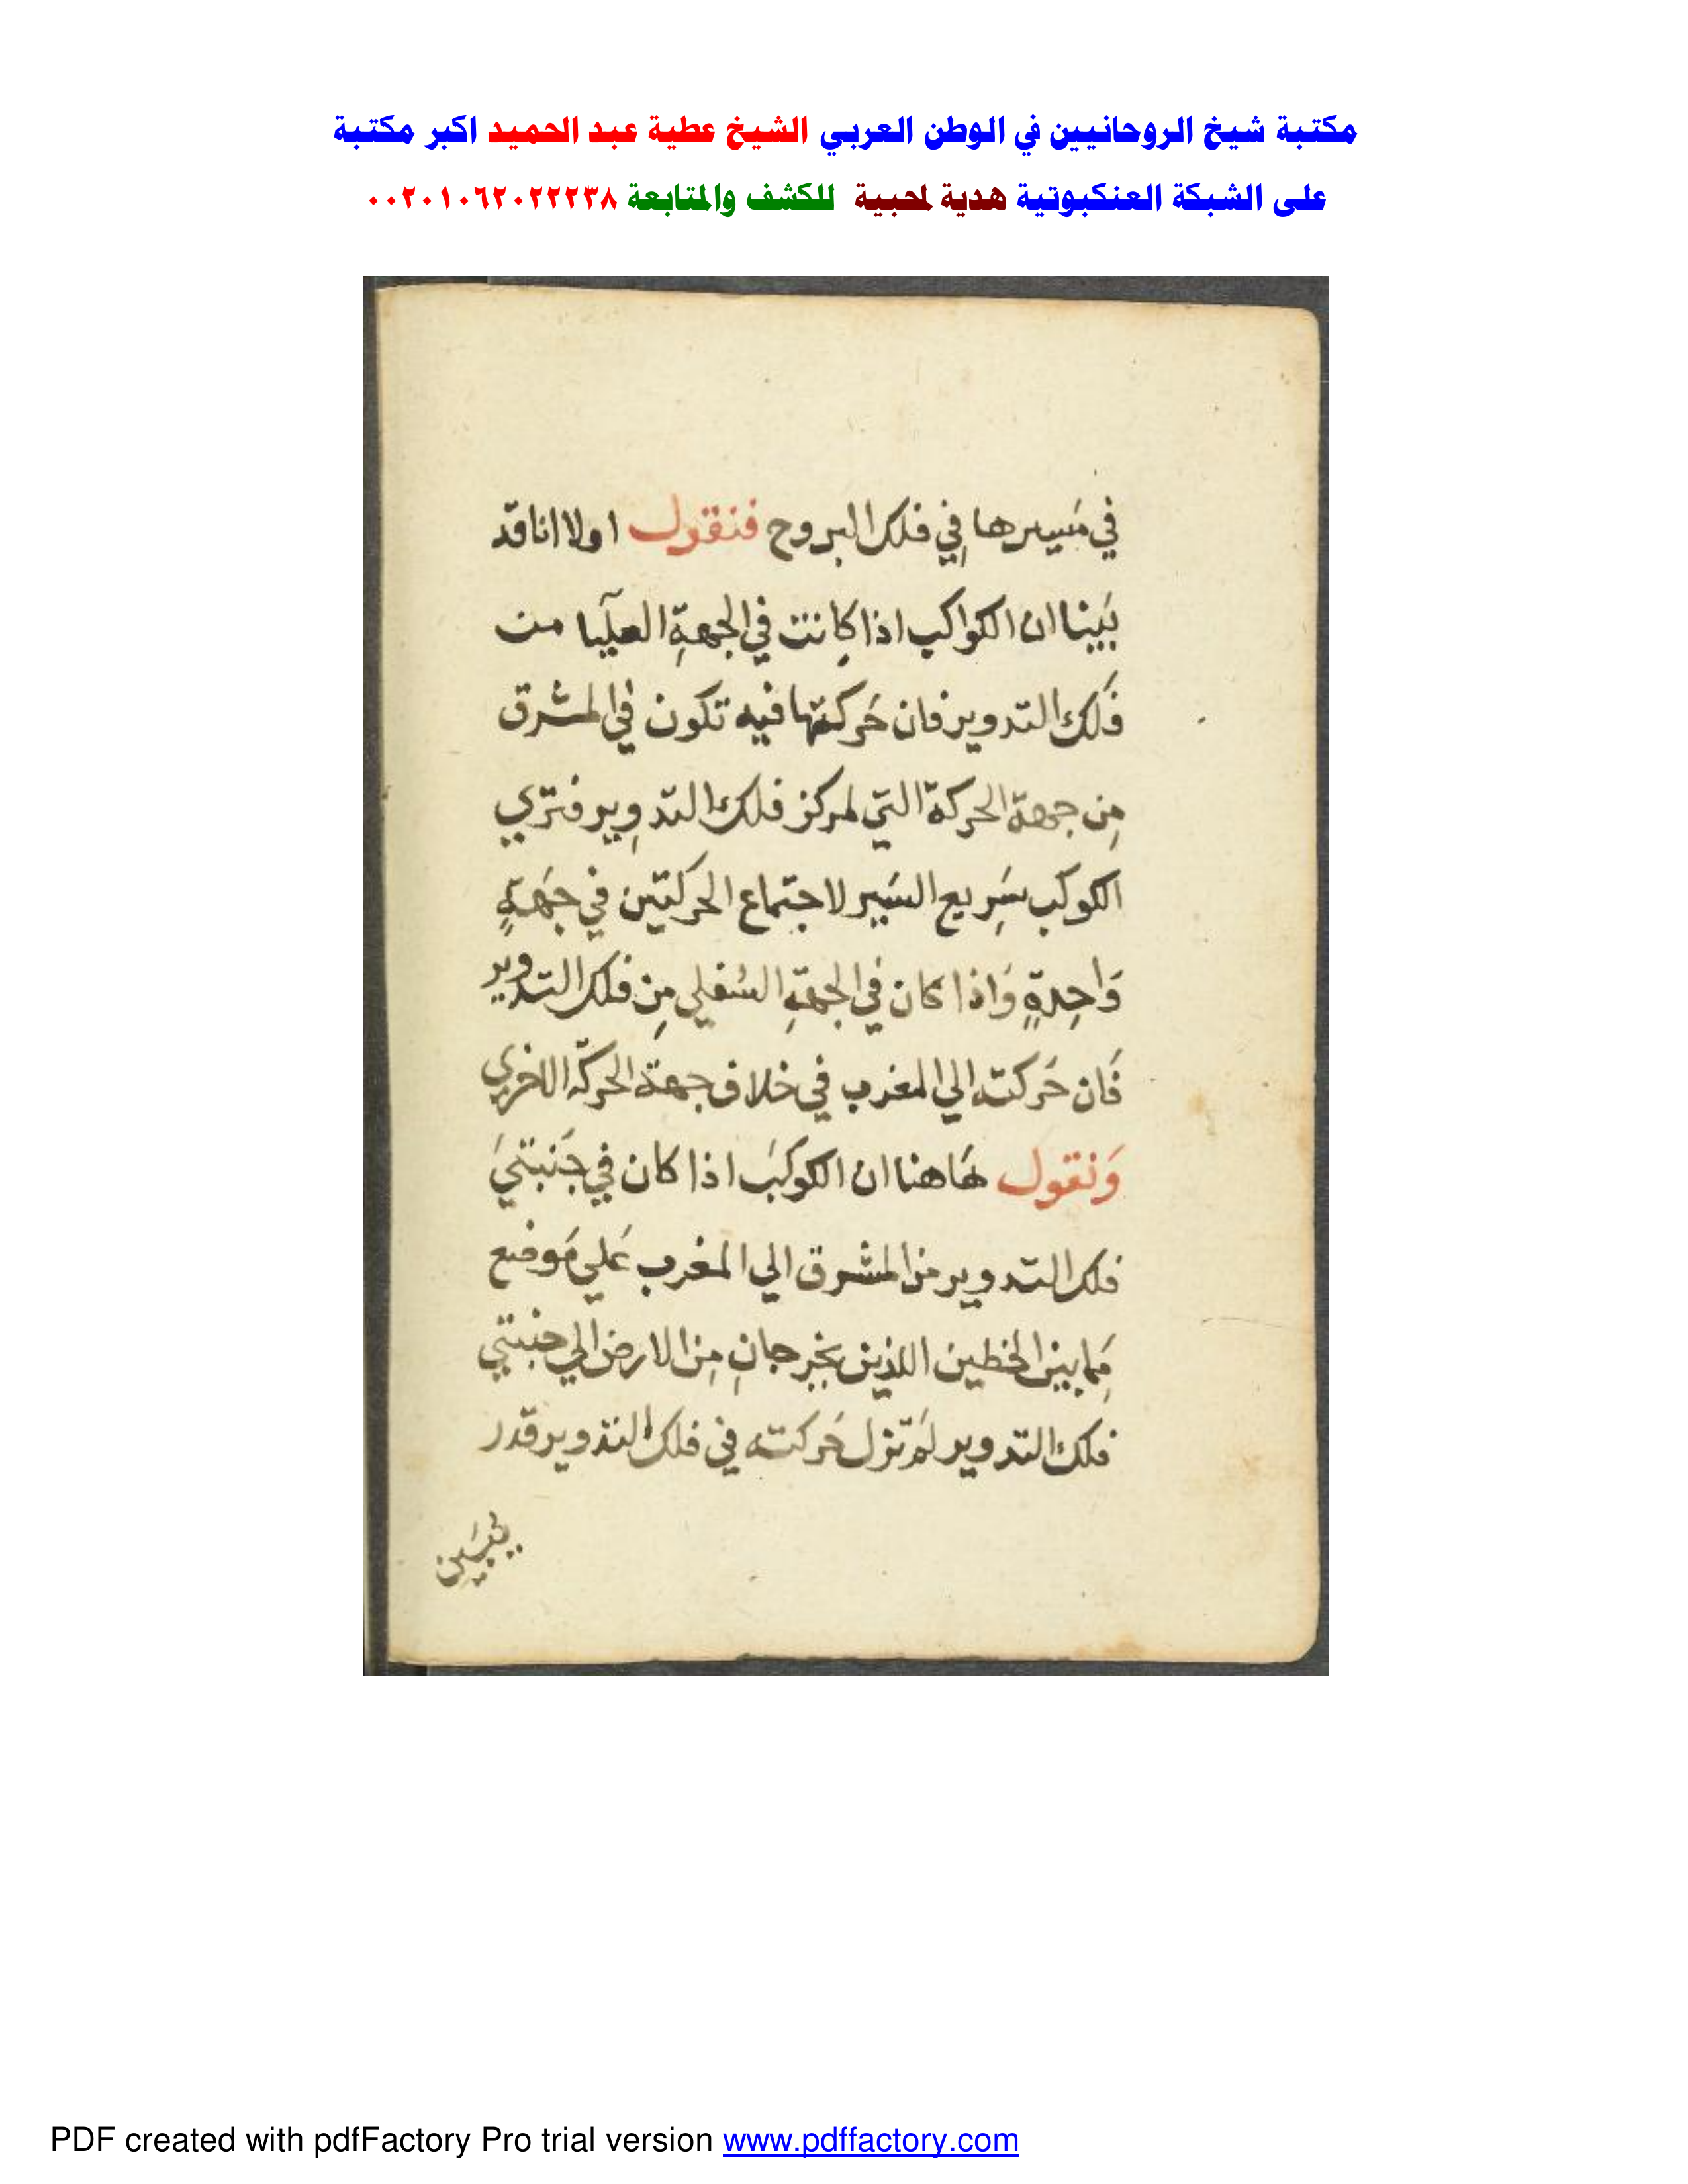 مكتبة شيخ الروحانيين في الوطن العربي الشيخ عطية عبد الحميد اكبر مكتبة
على الشبكة العنكبوتية هدية لمحبية للكشف والمتابعة ٠٠٢٠١٠٦٢٠٢٢٢٣٨
في مَسيرها في فلك البروج فنقول اولا انا قد
بَينا ان الكواكب اذا كانت في الجهةِ العليا من
فَلك التدوير فان حَركتها فيه تكون في المشرق
مِن جهة الحركة التي لمركز فلك التدوِير فتري
الكوكب سَرِيع السَير لاجتماع الحركتين في جهَةٍ
وَاحِدةٍ وَاذا كان في الجهةِ السُفلي مِن فلك التدوير
فَان حَركته الي المغرب في خلاف جهة الحركة الاخري
وَنقول هَاهنا ان الكوكبَ اذا كان في جَنبتيَ
فلك التدوير من المشرق الي المغرب عَلي مَوضع
مِما بين الخطين اللذين يخرجانِ مِن الارض الي جنبتي
فلك التدوير لَم تزل حَركته في فلك التدوير قدر
PDF created with pdfFactory Pro trial version www.pdffactory.com